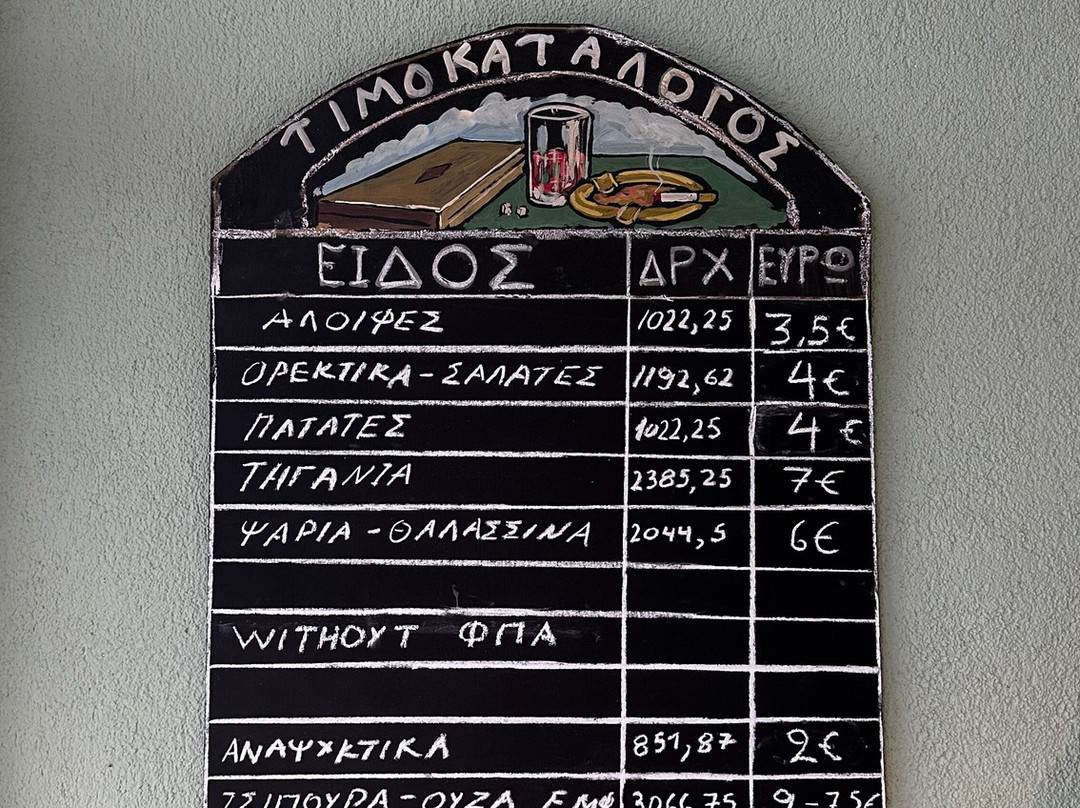 ΤΙΜΟΚΑΤΑΛΟΓΟΣ
ΕΙΔΟΣ ΔΡΧ ΕΥΡΩ
ΑΛΟΙΦΕΣ 1022,25 3,5€
ΟΡΕΚΤΙΚΑ-ΣΑΛΑΤΕΣ 1192,62 4€
ΠΑΤΑΤΕΣ 1022,25 4€
ΤΗΓΑΝΙΑ 2385,25 7€
ΨΑΡΙΑ-ΘΑΛΑΣΣΙΝΑ 2044,5 6€
WITHOUT ΦΠΑ
ΑΝΑΨΥΚΤΙΚΑ 851,87 2€
ΤΣΙΠΟΥΡΑ-ΟΥΖΑ ΕΜΦ 3066,75